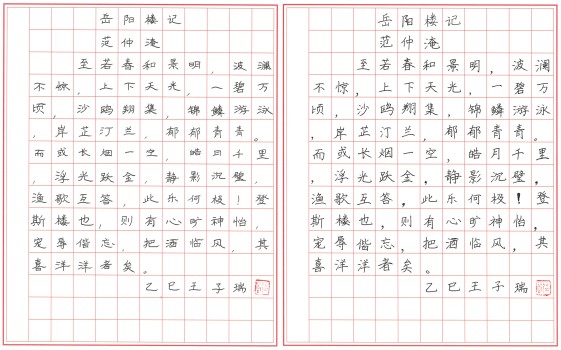 岳阳楼记
范仲淹
至若春和景明，波澜
不惊，上下天光，一碧万
顷，沙鸥翔集，锦鳞游泳
，岸芷汀兰，郁郁青青。
而或长烟一空，皓月千里
，浮光跃金，静影沉璧，
渔歌互答，此乐何极！登
斯楼也，则有心旷神怡，
宠辱偕忘，把酒临风，其
喜洋洋者矣。
乙巳王子瑞
岳阳楼记
范仲淹
至若春和景明，波澜
不惊，上下天光，一碧万
顷，沙鸥翔集，锦鳞游泳
，岸芷汀兰，郁郁青青。
而或长烟一空，皓月千里
，浮光跃金，静影沉璧，
渔歌互答，此乐何极！登
斯楼也，则有心旷神怡，
宠辱偕忘，把酒临风，其
喜洋洋者矣。
乙巳王子瑞